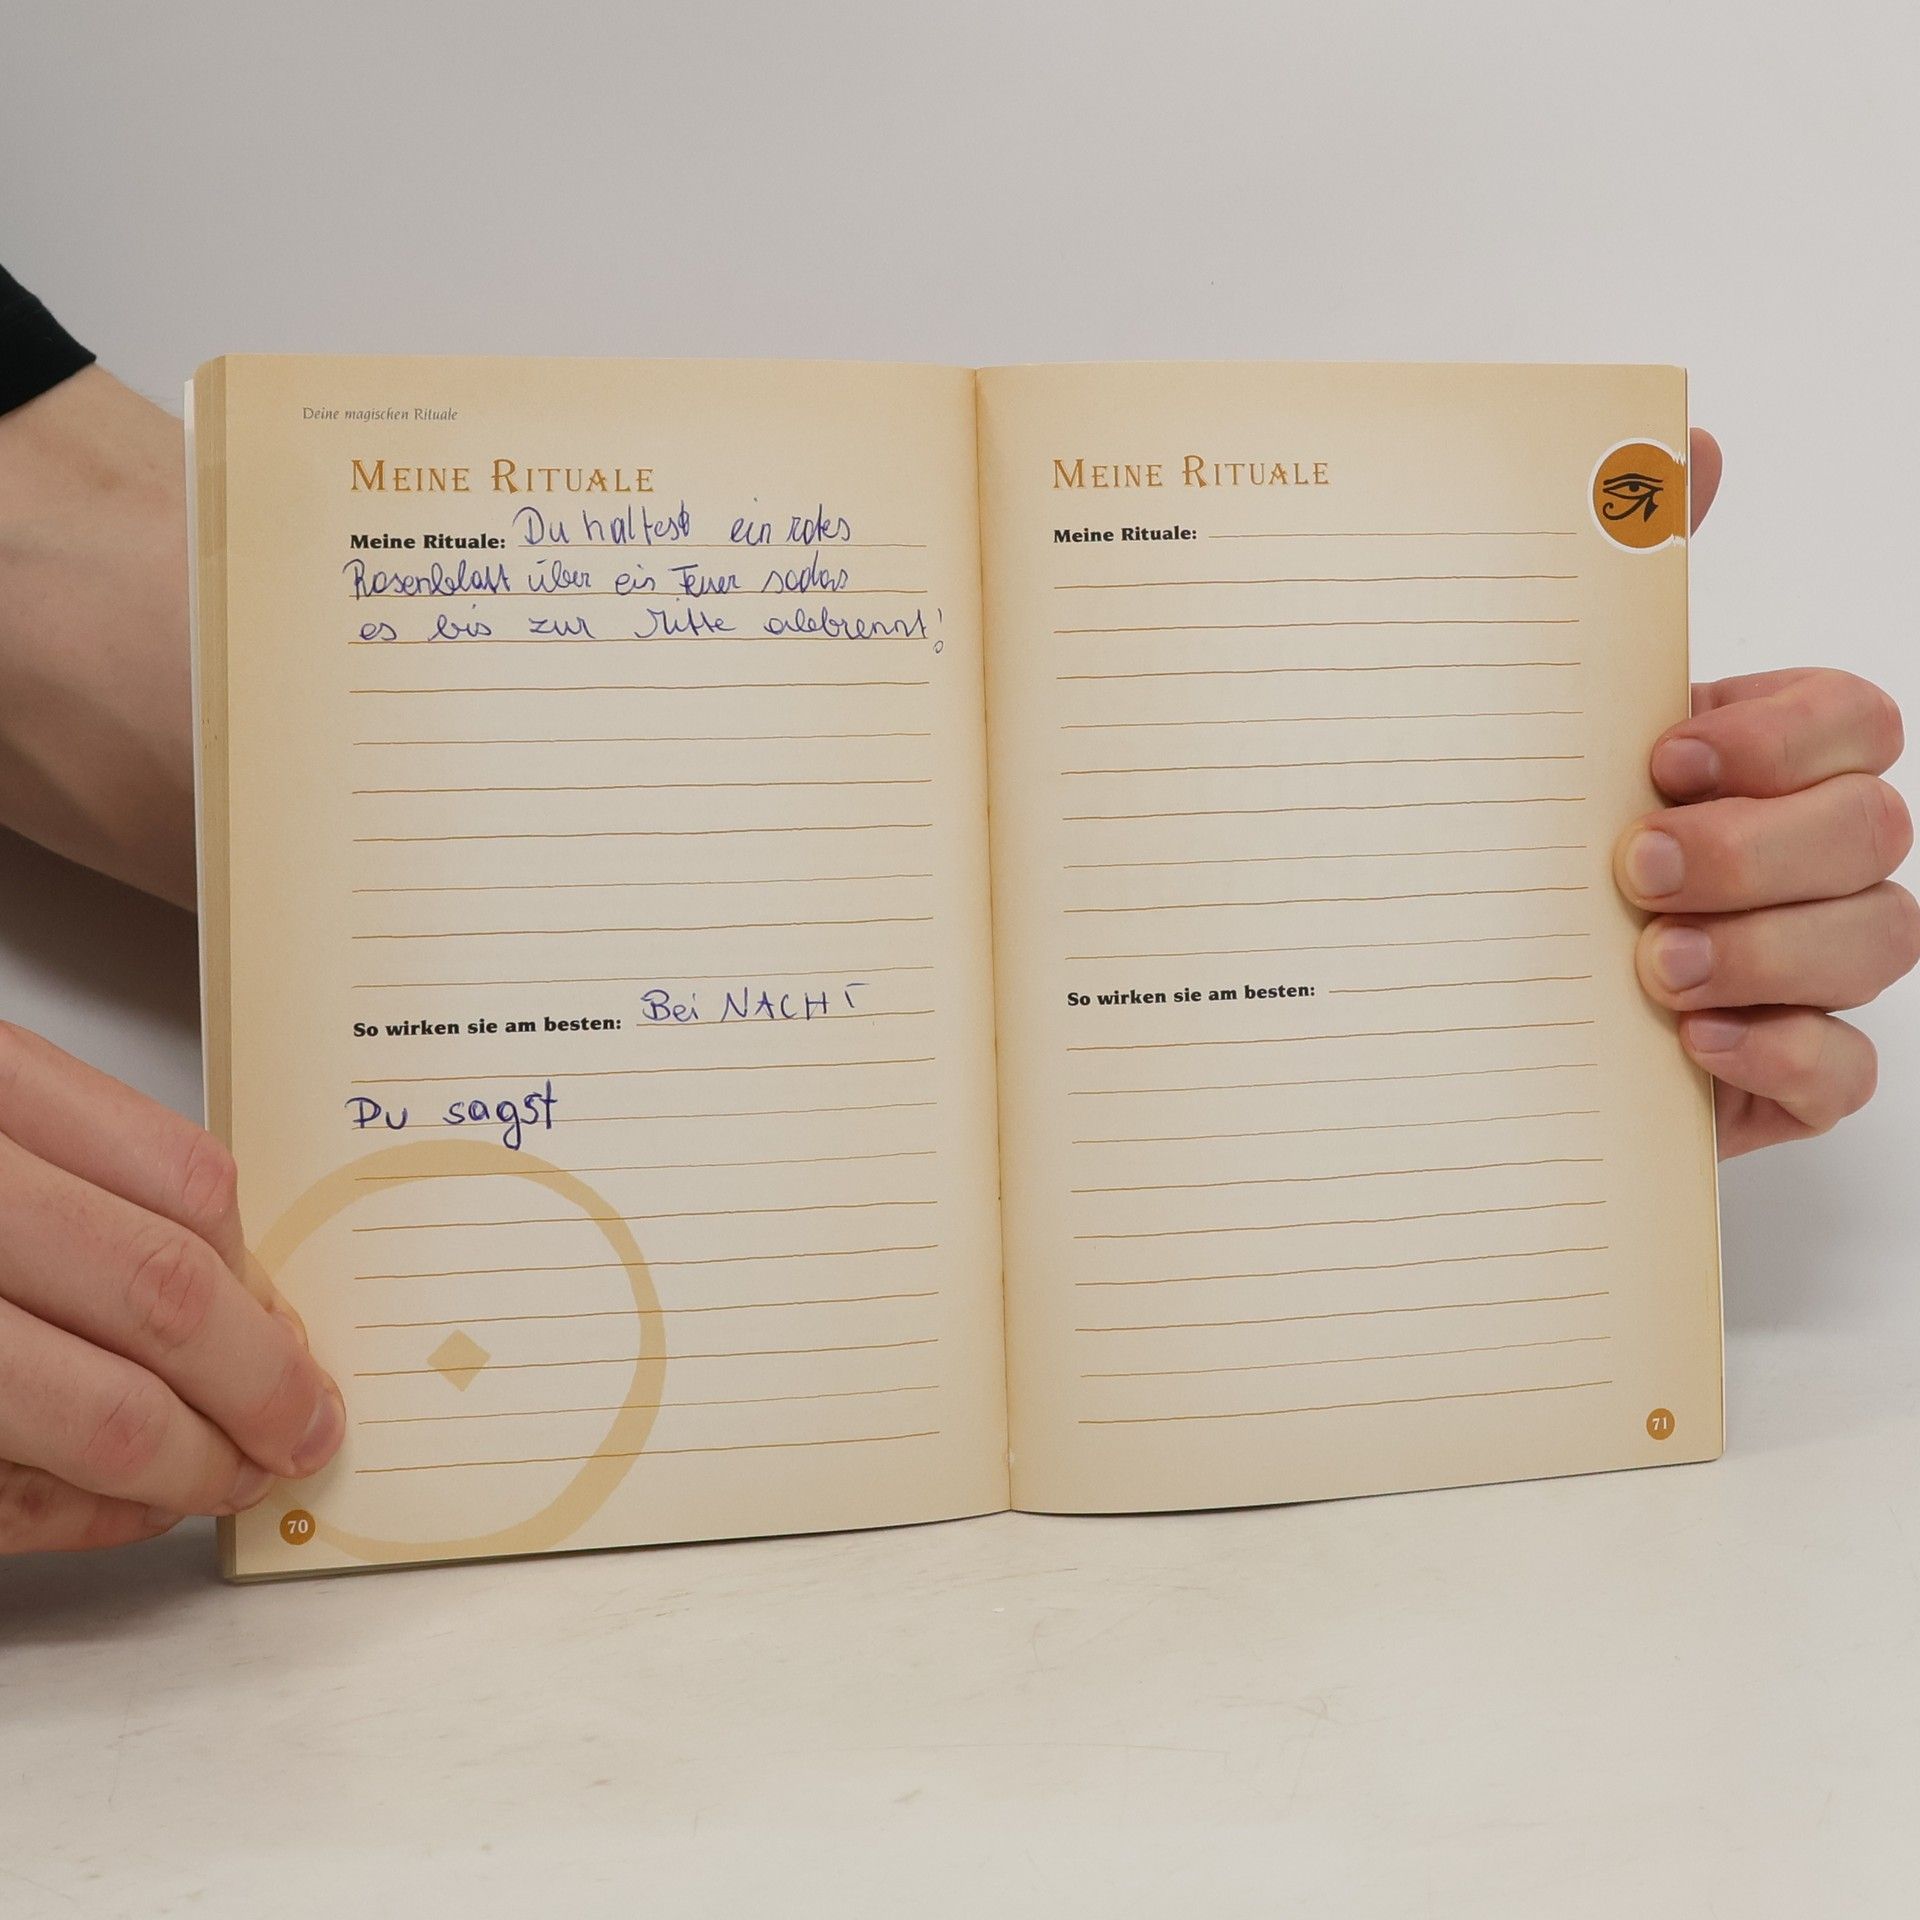 Deine magischen Rituale
MEINE RITUALE
Meine Rituale: Du haltest ein rotes
Rosenblatt über ein Feuer sodas
es bis zur Mitte abbrennt!
So wirken sie am besten: Bei NACHT
Du sagst
70
MEINE RITUALE
Meine Rituale:
So wirken sie am besten:
71